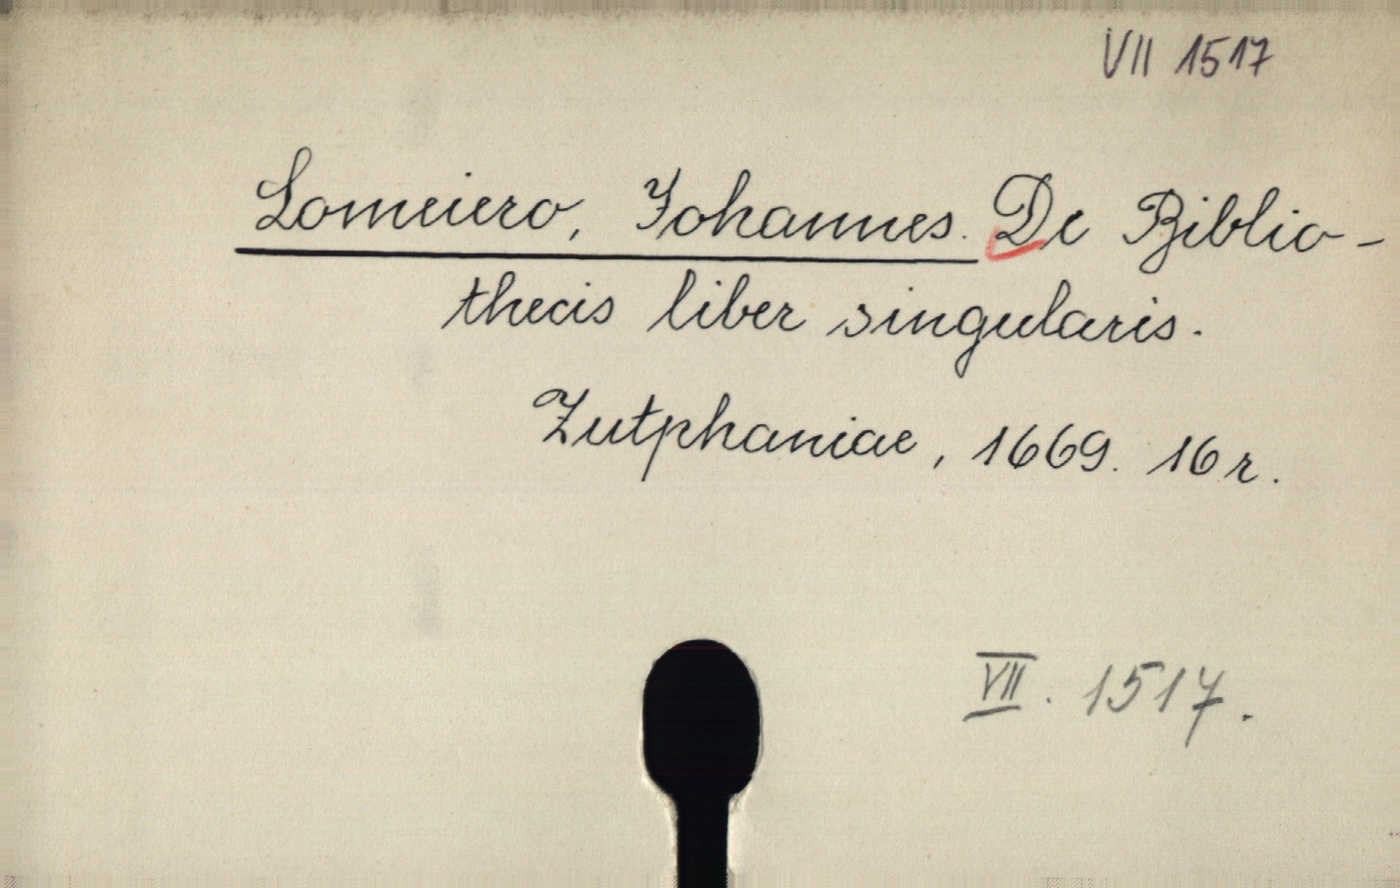 VII 1517
Lomeiero, Johannes. De Biblio-
thecis liber singularis.
Zutphaniae, 1669. 16 r.
VII. 1517.